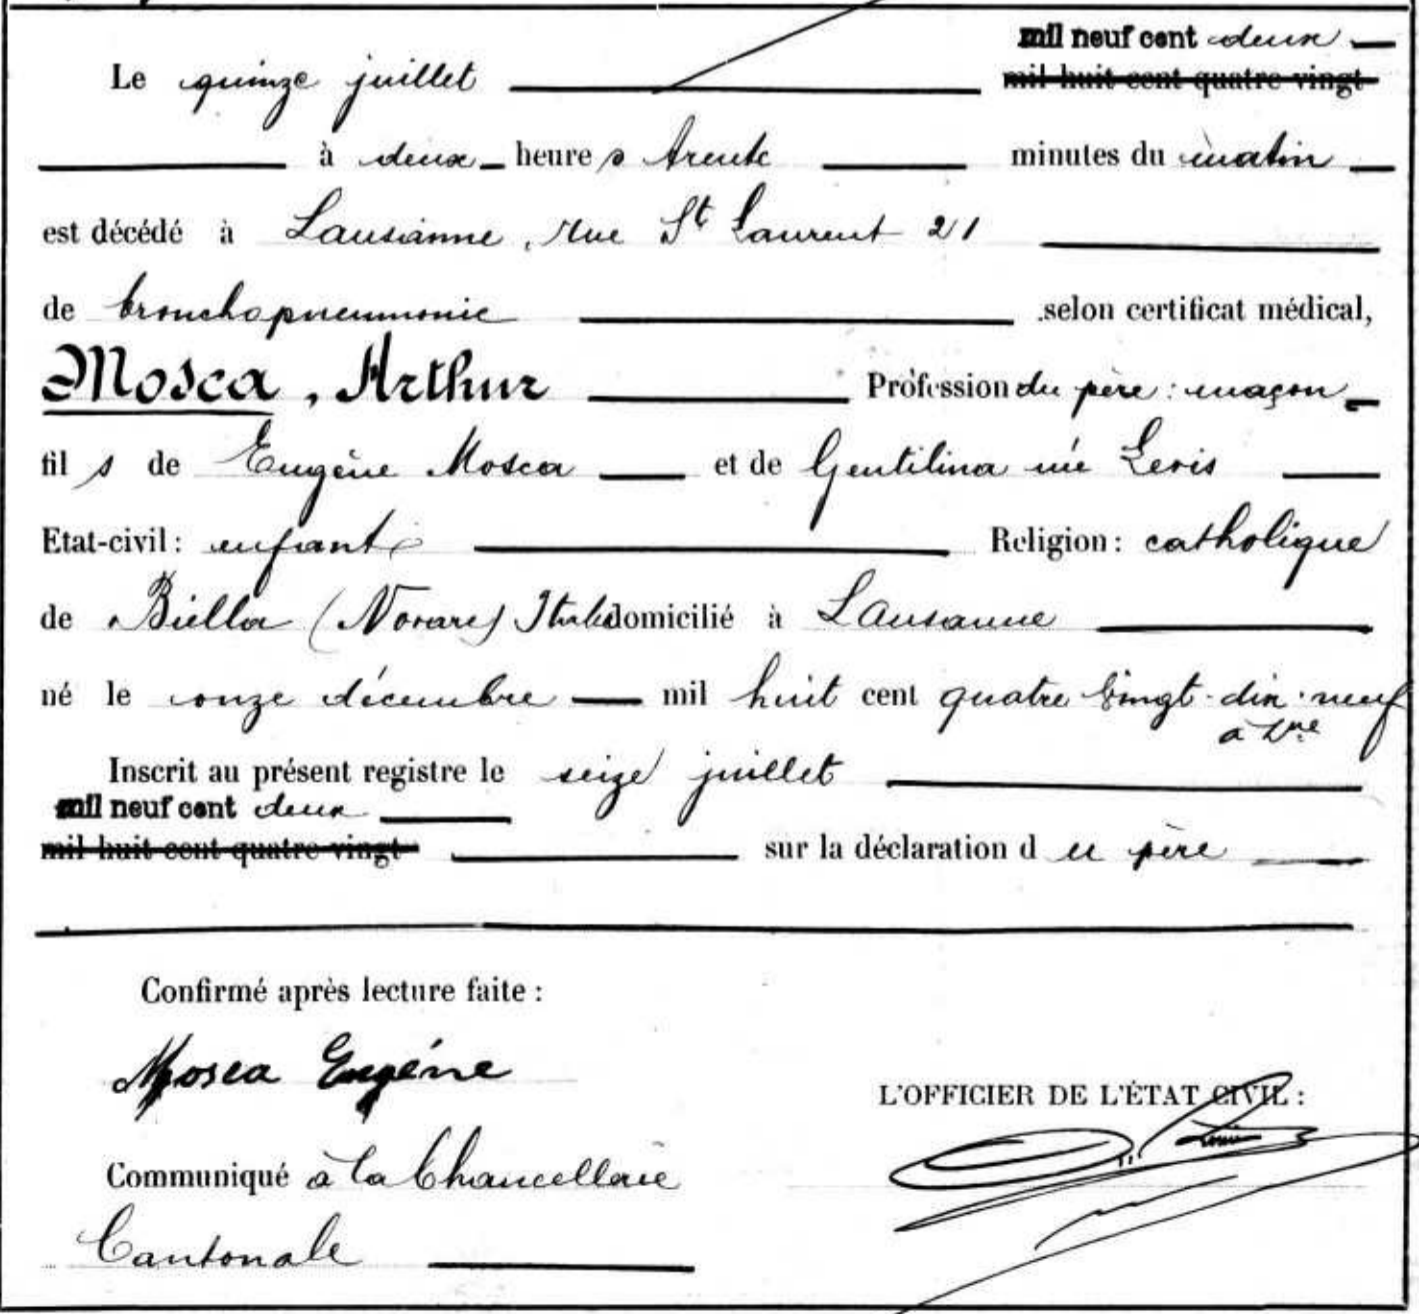 mil neuf cent deux
Le quinze juillet mil huit cent quatre vingt
à deux heures trente minutes du matin
est décédé à Lausanne, rue St Laurent 21
de bronchopneumonie selon certificat médical,
Mosca, Arthur Profession du père : maçon
fils de Eugène Mosca et de Gentilina née Levis
Etat-civil : enfant Religion : catholique
de Biella (Novare) Italie domicilié à Lausanne
né le onze décembre mil huit cent quatre vingt-dix-neuf
à Lne
Inscrit au présent registre le seize juillet
mil neuf cent deux
mil huit cent quatre vingt sur la déclaration du père
Confirmé après lecture faite :
Mosca Eugéne
L'OFFICIER DE L'ÉTAT CIVIL :
Communiqué à la Chancellerie
Cantonale